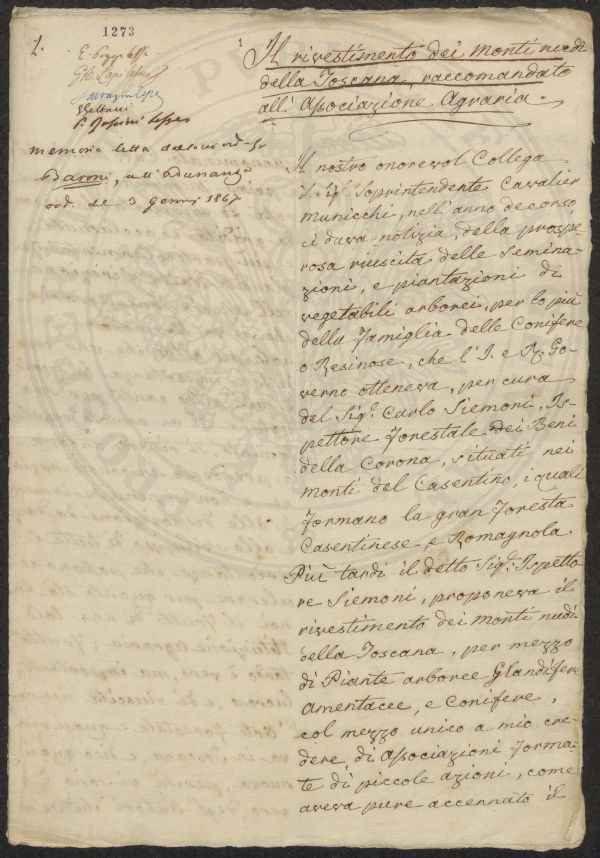 1.
1273
1
G. Galbani
memoria letta dal socio ord.
Baroni, nell' Adunanza
ord. del 3 Genn. 1864
Il rivestimento dei monti nudi
della Toscana, raccomandato
all' Associazione Agraria.
Il nostro onorevol Collega
il Sig. Soprintendente Cavalier
Municchi, nell' anno decorso
ci dava notizia, della prospe-
rosa riuscita delle semina-
zioni, e piantazioni di
vegetabili arborei, per lo più
della Famiglia delle Conifere
o Resinose, che l' I. e R. Go-
verno otteneva, per cura
del Sig. Carlo Siemoni, Is-
pettore Forestale dei Beni
della Corona, situati nei
monti del Casentino, i quali
formano la gran Foresta
Casentinese, e Romagnola.
Più tardi il detto Sig. Ispetto
re Siemoni, proponeva il
rivestimento dei monti nudi
della Toscana, per mezzo
di Piante arboree Glandifere
amentacee, e Conifere,
col mezzo unico a mio cre-
dere, di Associazioni forma-
te di piccole azioni, come
aveva pure accennato il